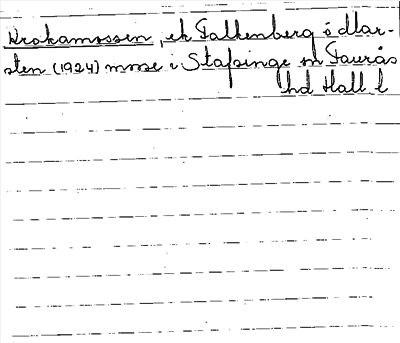 Krokamossen, ek Falkenberg ö dlar-
sten (1924) mosse i Stafsinge sn Faurås
hd Hall l